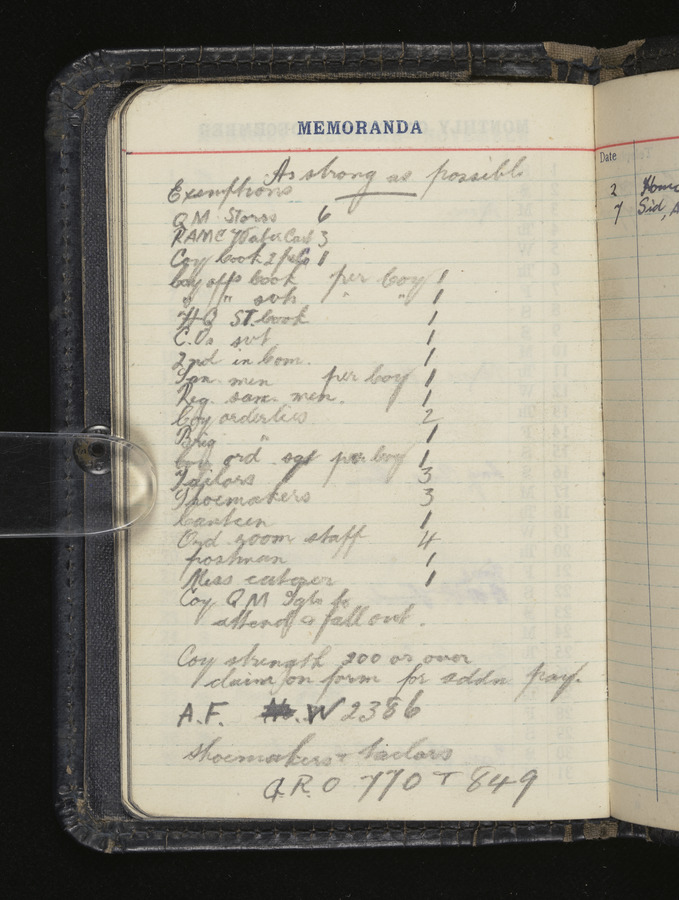 MEMORANDA
As strong as possible
Exemptions
QM Stores 6
RAMC Water Cart 3
Coy Cook 2 per Co 1
Coy offs Cook per Coy 1
" " svt " " 1
HQ ST. Cook 1
C.Os svt 1
2nd in Com. 1
San men per Coy 1
Reg. san. men. 1
Coy orderlies 2
Brig " 1
Coy ord sgt per Coy 1
Tailors 3
Shoemakers 3
Canteen 1
Ord room staff 4
postman 1
Mess caterer 1
Coy QM Sgts to
attend & fall out.
Coy strength 200 or over
claim on form for addn pay.
A.F. W 2386
Shoemakers + tailors
G.R.O 770 + 849
Date
2
7 Sid, A